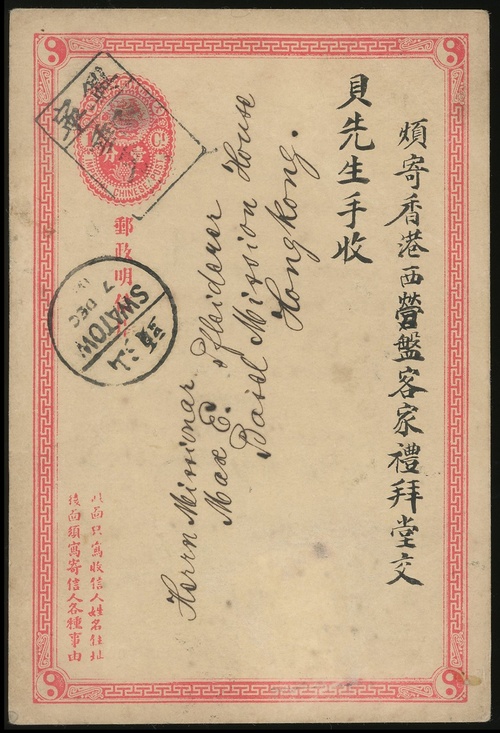 煩寄香港西營盤客家禮拜堂交
貝先生手收
Herrn Missionar
Max E. Pfleiderer
Basel Mission House
Hongkong.
CHINESE
郵政明信片
SWATOW
7 DEC
此面只寫收信人姓名住址
後面須寫寄信人各種事由